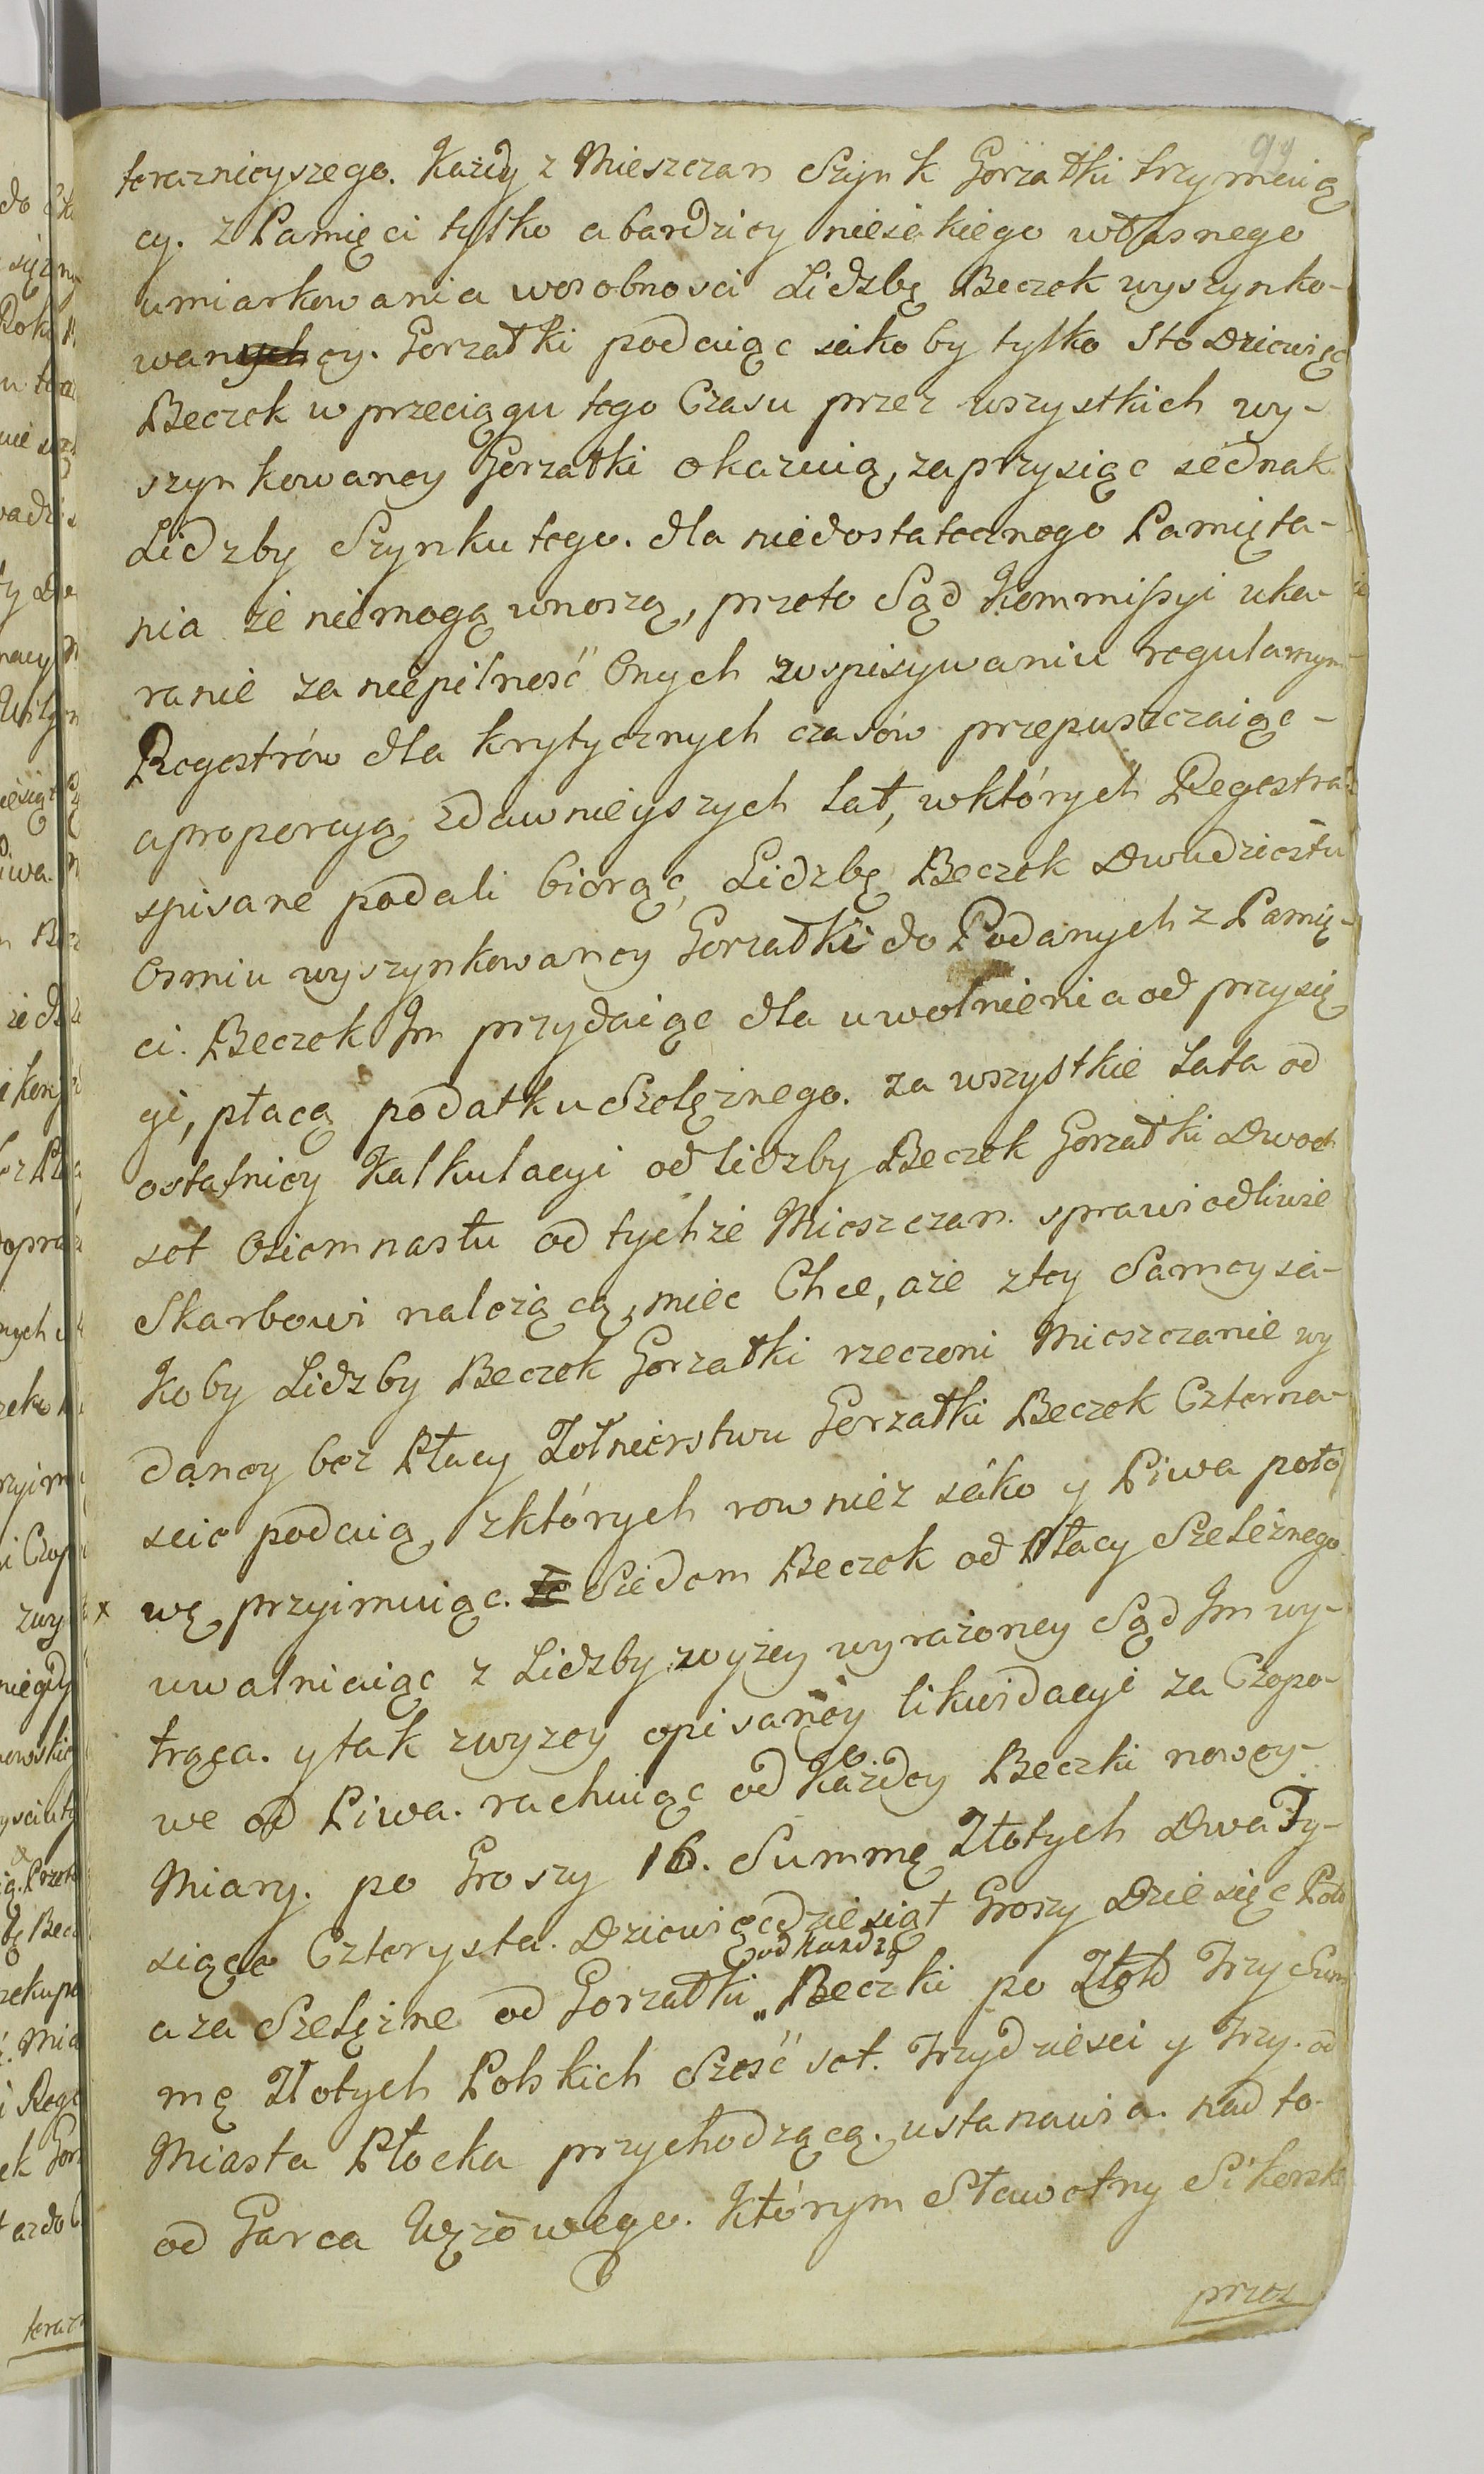 99
teraznieyszego. Każdy z Mieszczan Szynk Gorzałki trzymaią
cy. z Pamięci tylko a bardziey nieiakiego własnego
umiarkowania wosobnosci Lidzbę Beczek wyszynko-
waney. Gorzałki podaiąc iako by tylko Sto Dziewięć
Beczek w przeciągu tego Czasu przez wszystkich wy-
szynkowaney Gorzałki okazuią, zaprzysiąc iednak
Lidzby Szynku tego. dla niedostatecznego Pamięta-
nia że niemogą wnoszą, przeto Sąd Kommissyi uka-
ranie za niepilność Onych wspisywaniu regularnym
Regestrów dla krytycznych czasów przepuszczaiąc -
aproporcyą zdawnieyszych Lat, wktórych Regestra
spisane podali biorąc, Lidzbę Beczek Dwudziestu
Osmiu wyszynkowaney Gorzałki do Podanych z Pamię-
ci. Beczek Im przydaiąc dla uwolnienia od przysię
gi, płacą podatku Szelężnego. za wszystkie Lata od
ostatniey Kalkulacyi od lidzby Beczek Gorzałki Dwoch
set Osiemnastu od tychże Mieszczan. sprawiedliwie
Skarbowi należącą, miec Chce, aże ztey Samey ia-
koby Lidzby Beczek Gorzałki rzeczeni Mieszczanie wy
daney bez Płacy Zołnierstwu Gorzałki Beczek Czterna-
scie podaią, zktórych rowniez iako y Piwa poło
x wę przyimuiąc. Siedem Beczek od Płacy Szelężnego
uwalniaiąc z Lidzby wyżey wyrażoney Sąd Im wy-
trąca. ytak zwyzey opisaney likwidacyi za Czopo-
we od Piwa. rachuiąc od Każdey Beczki nowey
Miary. po Groszy 16. Summę Złotych Dwa Ty-
siące Czterysta. Dziewięcdziesiąt Groszy Dziesięć Pols
od kazdey
a za Szelężne od Gorzałki „ Beczki po Złotł Trzy Sum
mę Złotych Polskich Sześć set. Trzydziesci y Trzy. od
Miasta Płocka przychodzącą. ustanawia. nad to
od Garca Węzowego. którym Sławetny Sikorski
przez